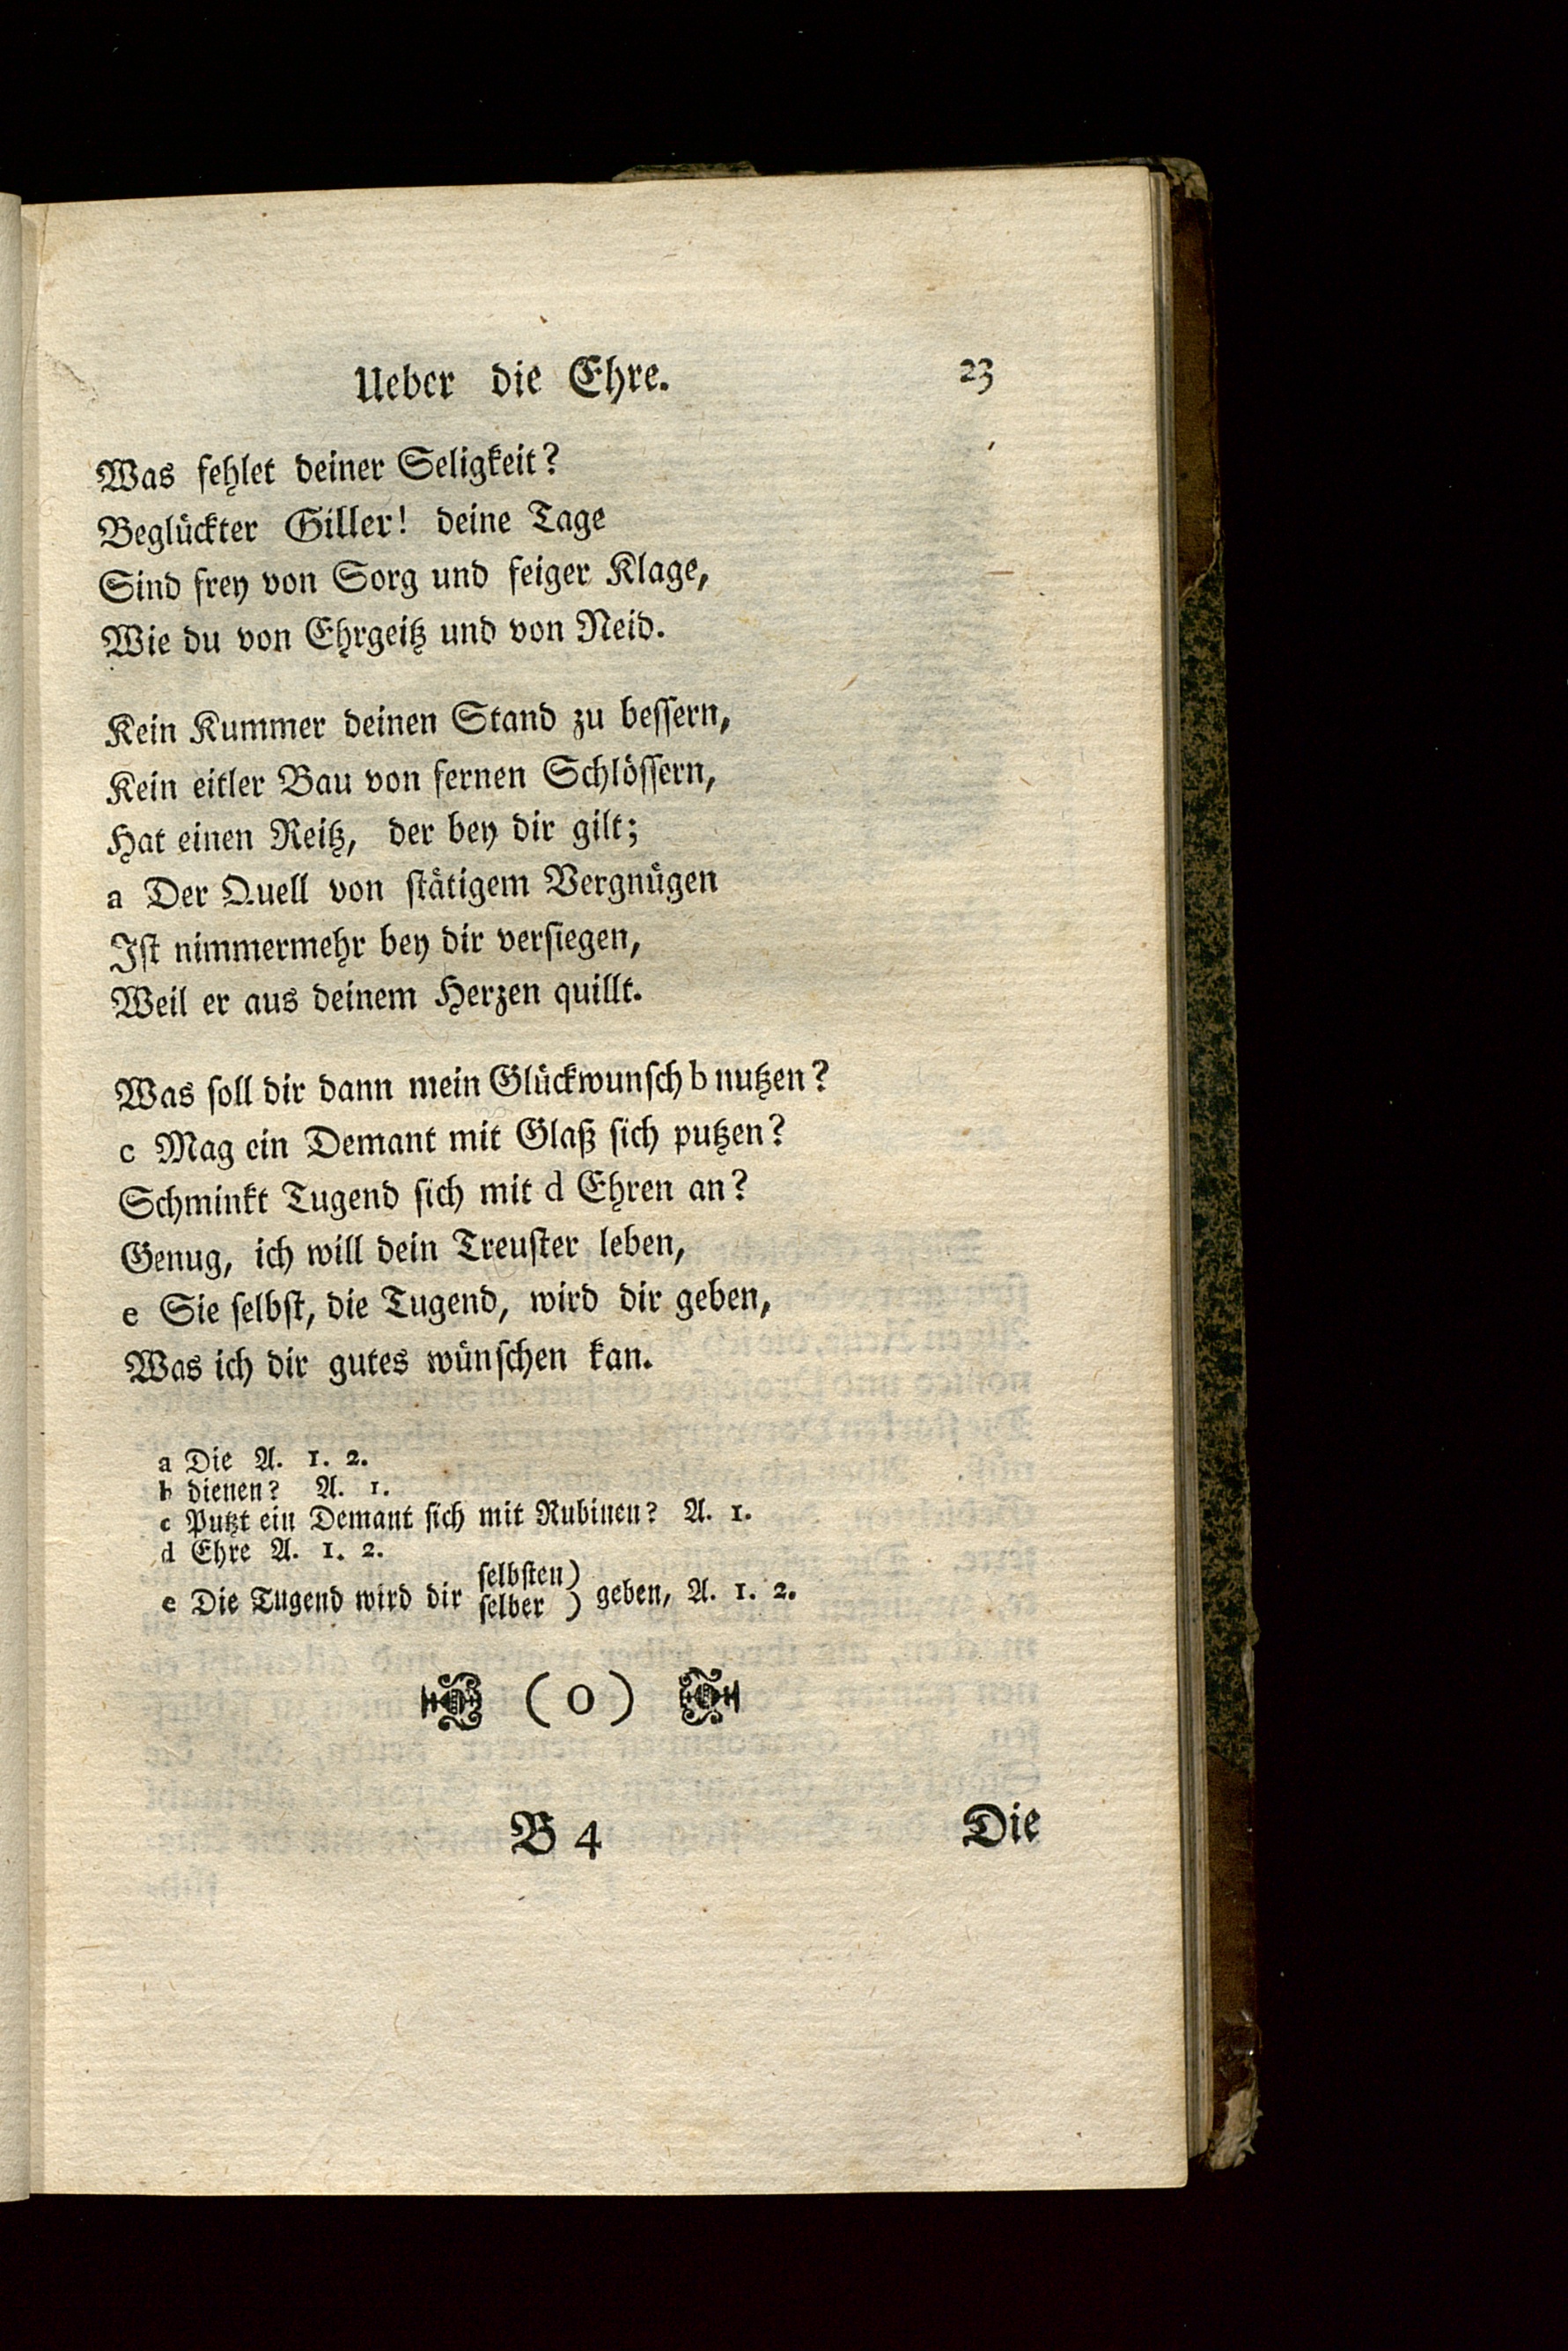 Ueber die Ehre. 23
Was fehlet deiner Seligkeit?
Beglückter Giller! deine Tage
Sind frey von Sorg und feiger Klage,
Wie du von Ehrgeitz und von Neid.
Kein Kummer deinen Stand zu beſſern,
Kein eitler Bau von fernen Schlöſſern,
Hat einen Reitz, der bey dir gilt;
a Der Quell von ſtätigem Vergnügen
Iſt nimmermehr bey dir verſiegen,
Weil er aus deinem Herzen quillt.
Was ſoll dir dann mein Glückwunſch b nutzen?
c Mag ein Demant mit Glaß ſich putzen?
Schminkt Tugend ſich mit d Ehren an?
Genug, ich will dein Treuſter leben,
e Sie ſelbſt, die Tugend, wird dir geben,
Was ich dir gutes wünſchen kan.
a Die A. 1. 2.
b dienen? A. 1.
c Putzt ein Demant ſich mit Rubinen? A. 1.
d Ehre A. 1. 2.
ſelbſten)
e Die Tugend wird dir ſelber ) geben, A. 1. 2.
( o )
B 4 Die